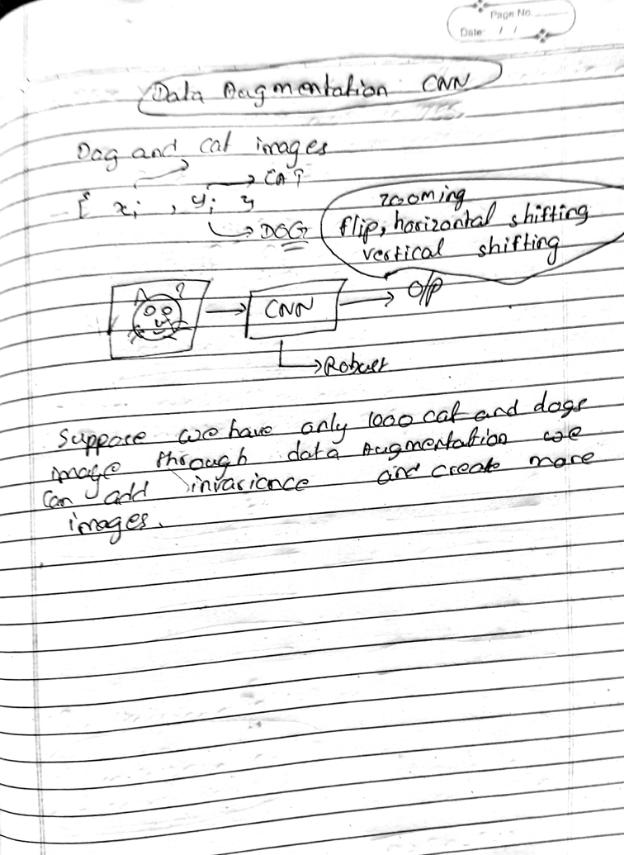 Page No.
Date / /
Data Augmentation CNN
Dog and cat images
{ xi , yi }
CAT
DOG
zooming
flip, horizontal shifting
vertical shifting
CNN
O/P
Robust
Suppose we have only 1000 cat and dogs
image through data Augmentation we
can add invarience and create more
images.